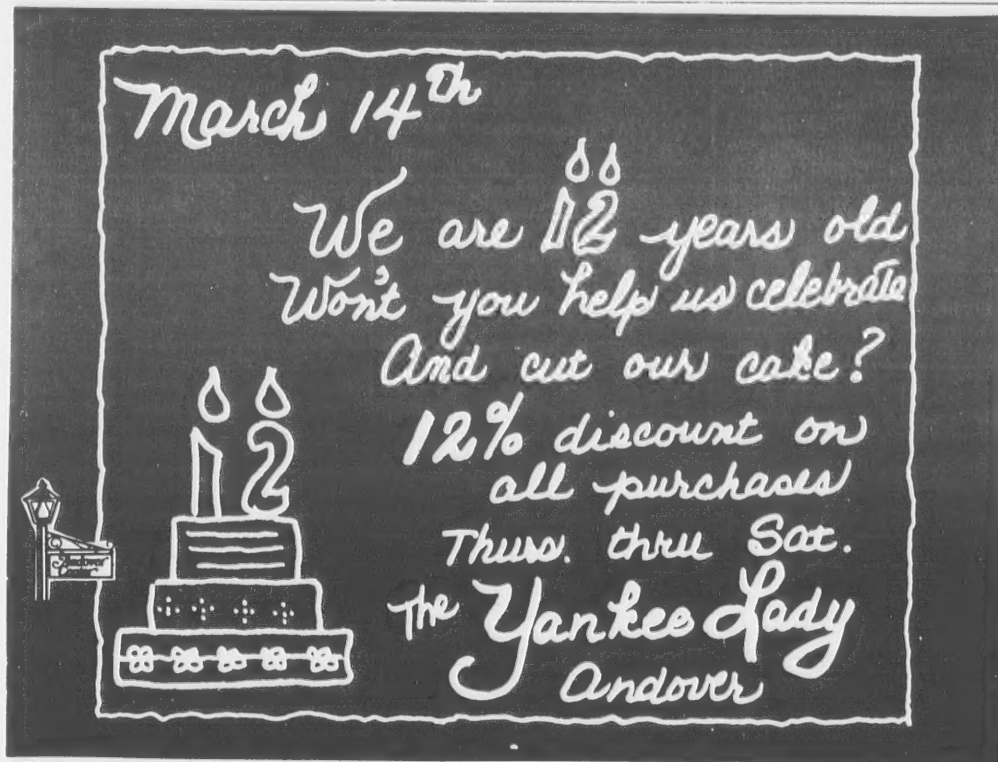 March 14th
We are 12 years old
Won't you help us celebrate
And cut our cake?
12% discount on
all purchases
Thurs. thru Sat.
The Yankee Lady
Andover
12
Andover